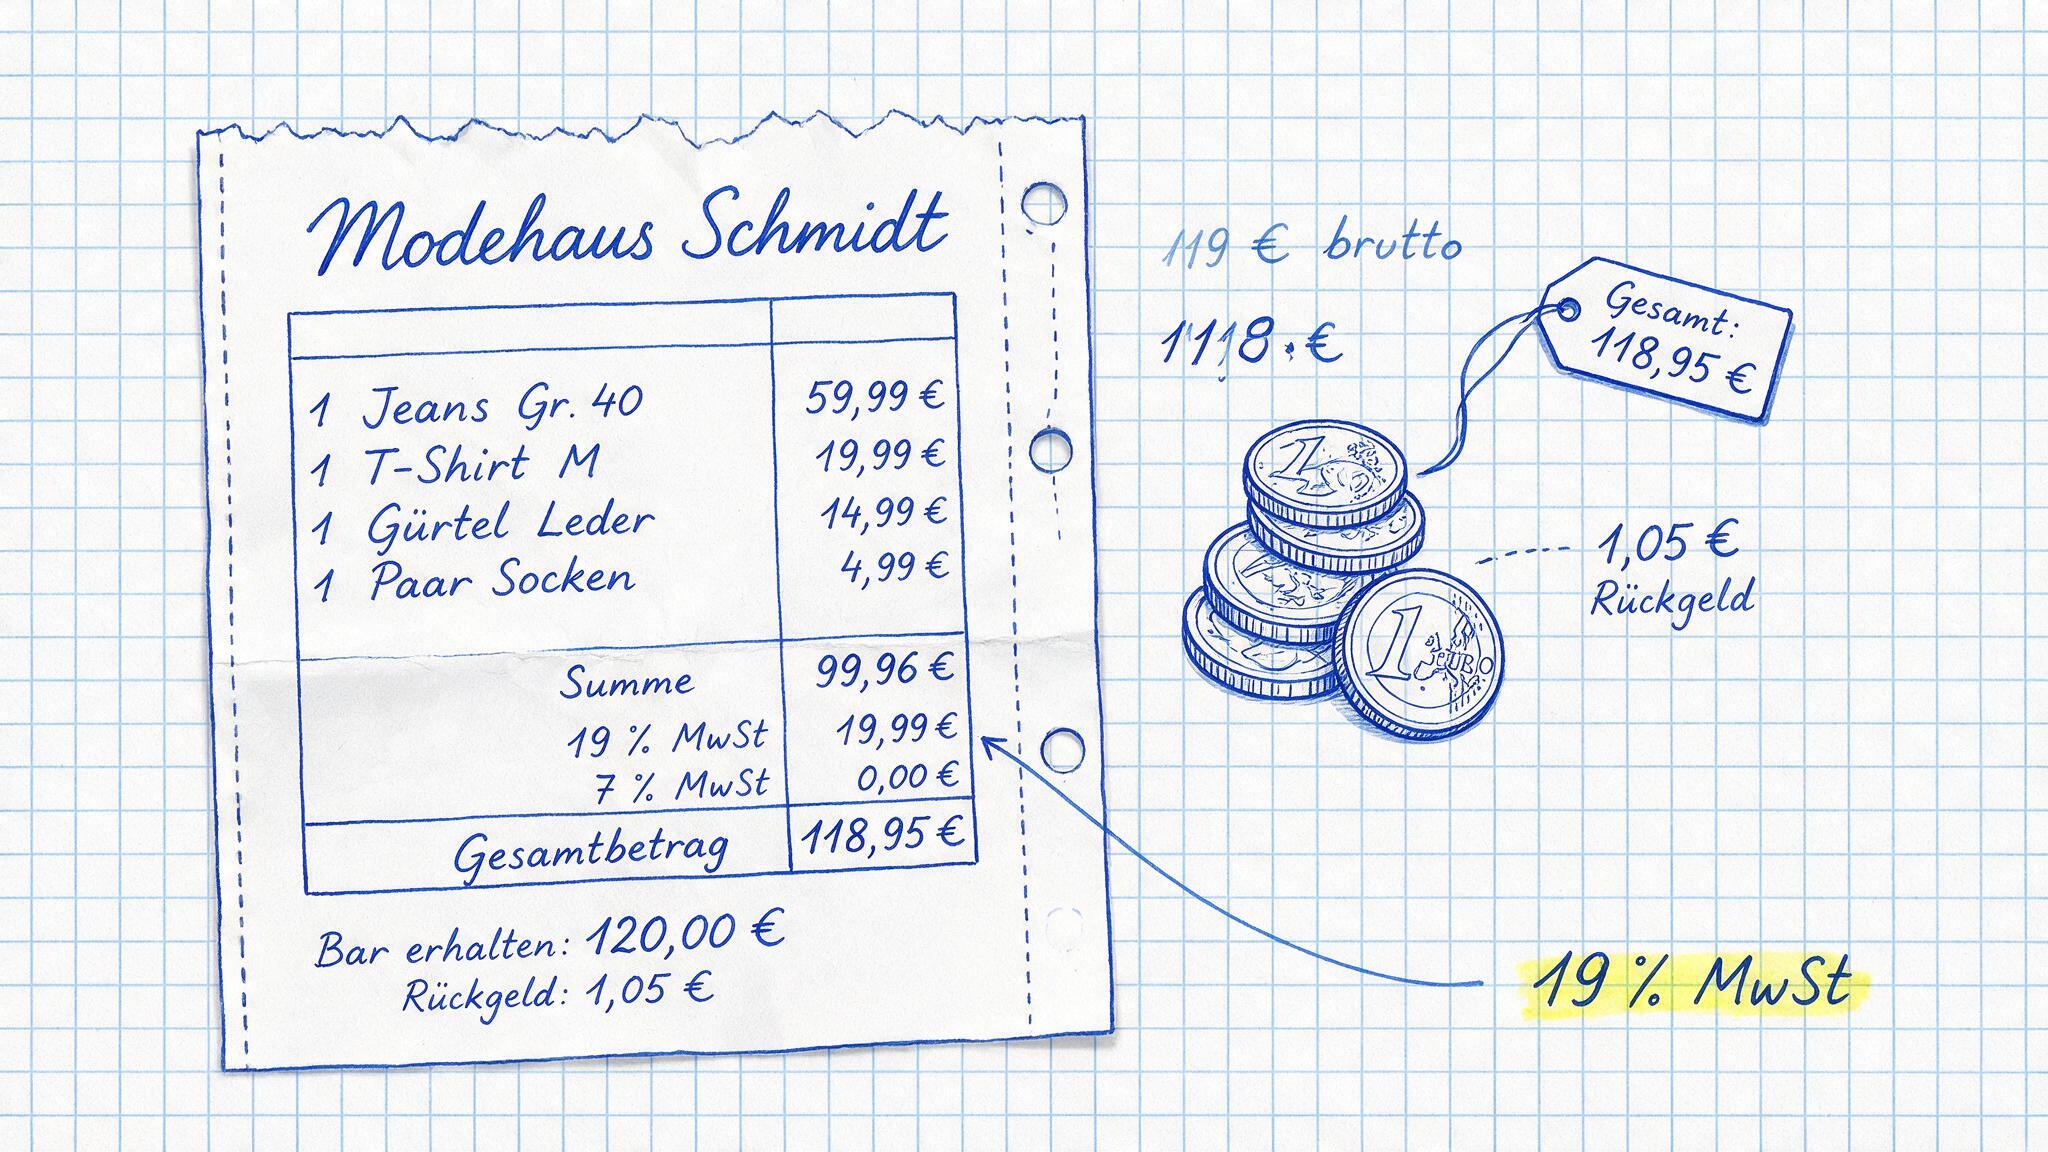 Modehaus Schmidt
1 Jeans Gr. 40 59,99 €
1 T-Shirt M 19,99 €
1 Gürtel Leder 14,99 €
1 Paar Socken 4,99 €
Summe 99,96 €
19 % MwSt 19,99 €
7 % MwSt 0,00 €
Gesamtbetrag 118,95 €
Bar erhalten: 120,00 €
Rückgeld: 1,05 €
119 € brutto
€
Gesamt:
118,95 €
1
1
1 EURO
1,05 €
Rückgeld
19 % MwSt